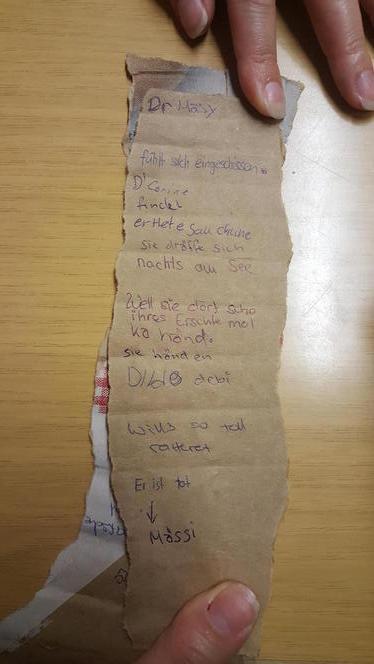 Dr Mäsy
fühlt sich eingeschissen.
D'Corine
findet
er hete Sau chune
sie dröffe sich
nachts am See
Well sie dort scho
ihres Erschte mol
ka händ.
sie händ en
Dildo debi
Wills so tell
ratteret
Er ist tot
↓
Mässi